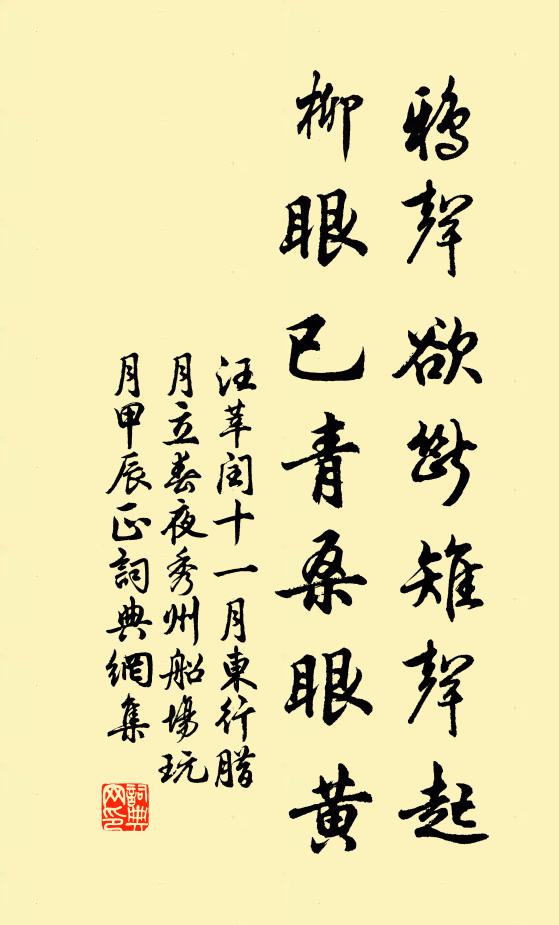 鴉聲欲斷雉聲起
柳眼已青桑眼黃
汪莘閏十一月東行腊
月立春夜秀州船場玩
月甲辰正詞典網集
詞典網印